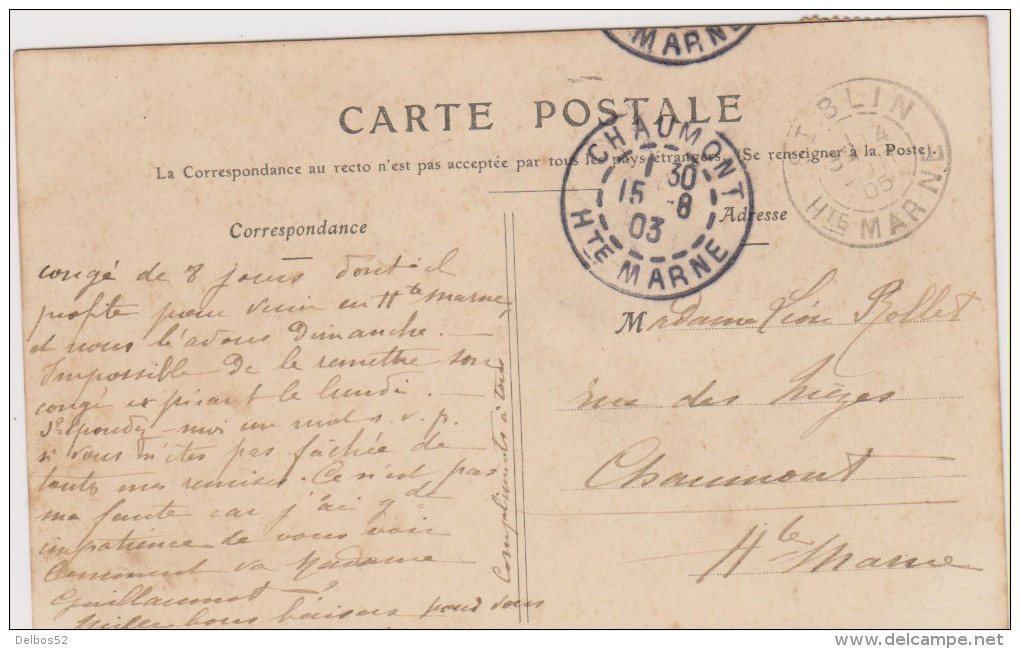 MARNE
CARTE POSTALE
La Correspondance au recto n'est pas acceptée par tous les pays étrangers. (Se renseigner à la Poste).
CHAUMONT
1 30
15 8
03
HTE MARNE
BLIN
05
HTE MARNE
Correspondance
Adresse
congé de 8 jours dont il
profite pour venir en Hte marne,
et nous l'avons Dimanche. —
Impossible De le remettre son
congé expirant le lundi. —
Répondez-moi un mot s. v. p.
si vous n'êtes pas fâchée de
toutes mes remises. Ce n'est pas
ma faute car j'ai gde
impatience de vous voir
Comment va Madame
Guillaumot?
Mille bons baisers pour vous
Compliments à tous
Madame Rollet
rue des
Chaumont
Hte Marne
Delbos52
delcampe.net